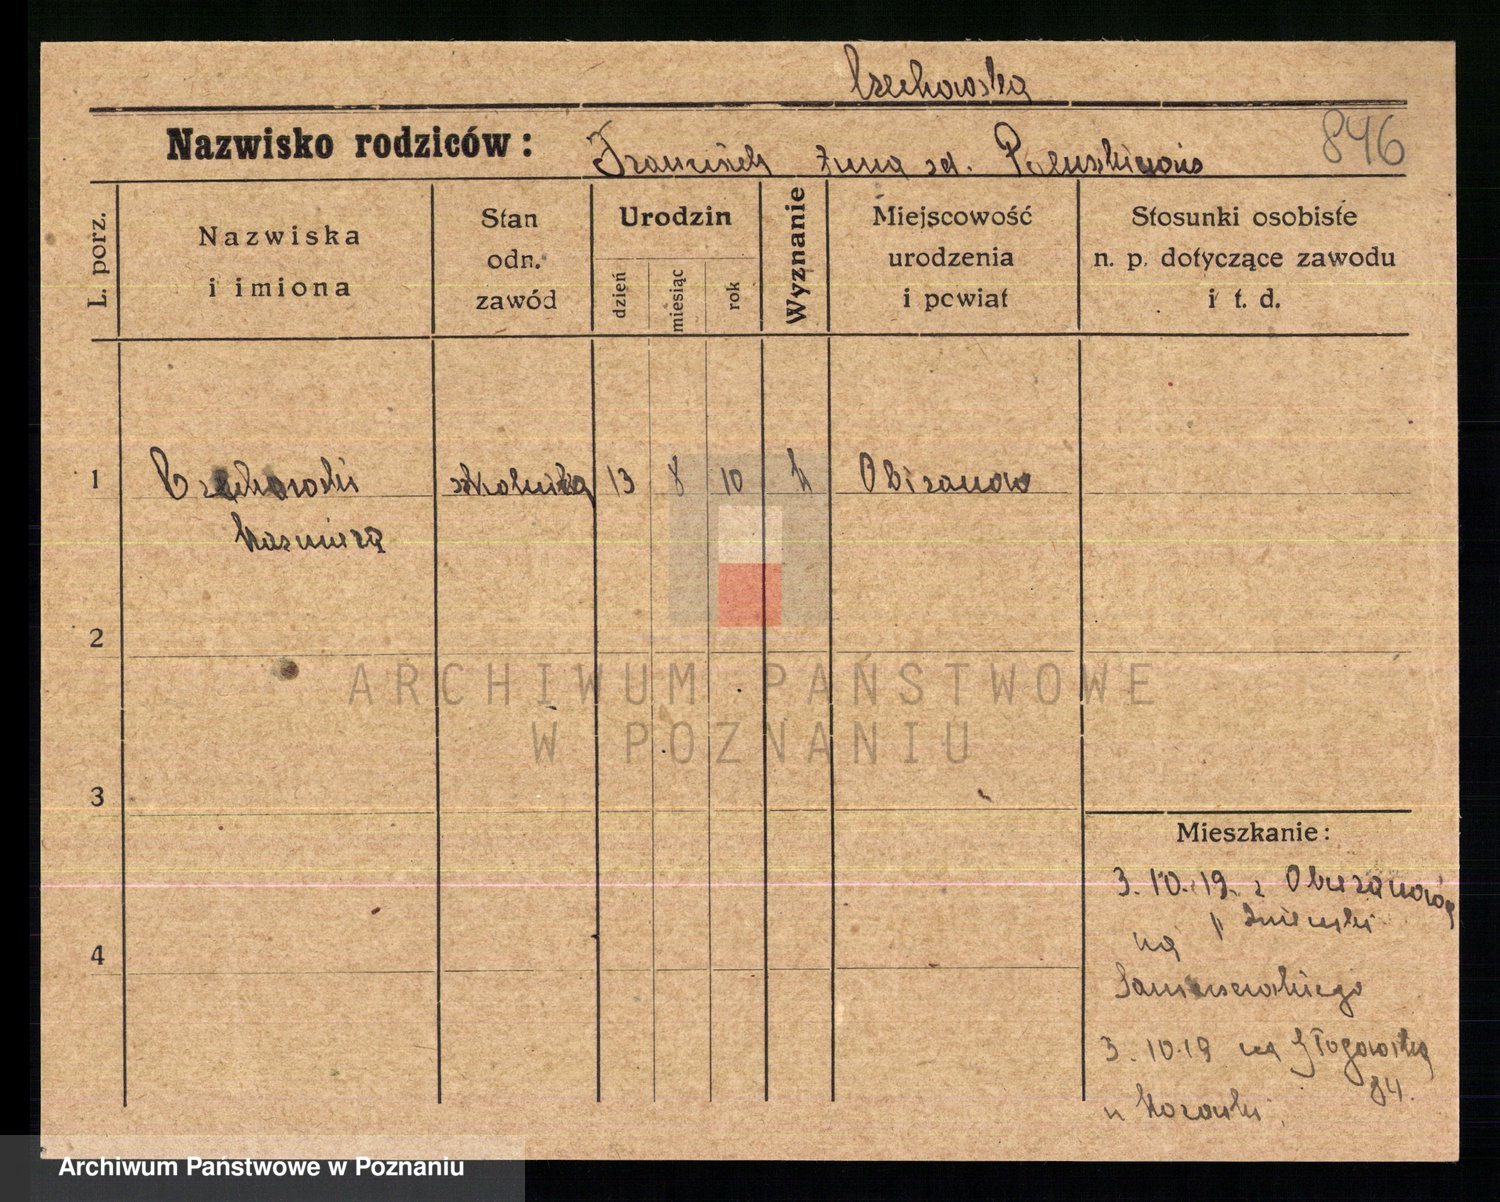 Czechowska
Nazwisko rodziców: Franciszek Anna zd.
846
L. porz.
Nazwiska
i imiona
Stan
odn.
zawód
Urodzin
dzień
miesiąc
rok
Wyznanie
Miejscowość
urodzenia
i powiat
Stosunki osobiste
n. p. dotyczące zawodu
i t. d.
1 Czechowski 13 8 10 k
2
3
4
Mieszkanie:
3. 10. 19. z
na
3. 10 19 na Głogowską
84.
ARCHIWUM PAŃSTWOWE
W POZNANIU
Archiwum Państwowe w Poznaniu